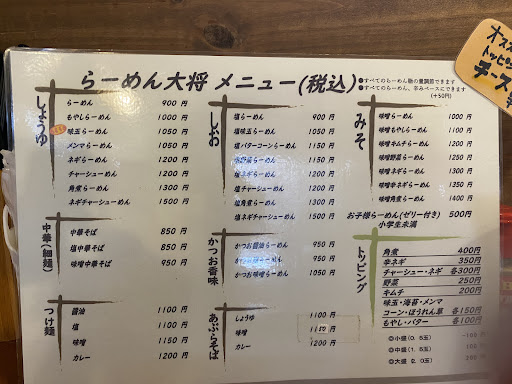 らーめん大将 メニュー(税込)
●すべてのらーめん麺の量調節できます
●すべてのらーめん、辛みベースにできます
(+50円)
オススメ
トッピング
チーズ
しょうゆ
らーめん 900円
もやしらーめん 1000円
味玉らーめん 1050円
メンマらーめん 1050円
ネギらーめん 1150円
チャーシューめん 1200円
角煮らーめん 1300円
ネギチャーシューめん 1500円
しお
塩らーめん 950円
塩味玉らーめん 1050円
塩バターコーンらーめん 1150円
塩野菜らーめん 1150円
塩ネギらーめん 1200円
塩チャーシューめん 1200円
塩角煮らーめん 1300円
塩ネギチャーシューめん
みそ
味噌らーめん 1000円
味噌もやしらーめん 1100円
味噌キムチらーめん 1200円
味噌野菜らーめん 1250円
味噌ネギらーめん 1300円
味噌辛ネギらーめん 1350円
味噌角煮らーめん 1400円
お子様らーめん(ゼリー付き) 500円
小学生未満
中華(細麺)
中華そば 850円
塩中華そば 850円
味噌中華そば 950円
かつお香味
かつお醤油らーめん 950円
かつお塩らーめん 950円
かつお味噌らーめん 1050円
トッピング
角煮 400円
辛ネギ 350円
チャーシュー・ネギ 各300円
野菜 250円
キムチ 200円
味玉・海苔・メンマ
コーン・ほうれん草 各150円
もやし・バター 各100円
◎小盛(0.5玉)
◎中盛(1.5玉)
◎大盛(2.0玉)
つけ麺
醤油 1100円
塩 1100円
味噌 1150円
カレー 1200円
あぶらそば
しょうゆ 1100円
味噌 1150円
カレー 1200円